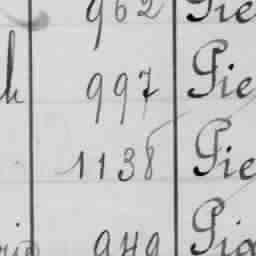 962 Pie
997 Pie
1138 Pie
949 Pia